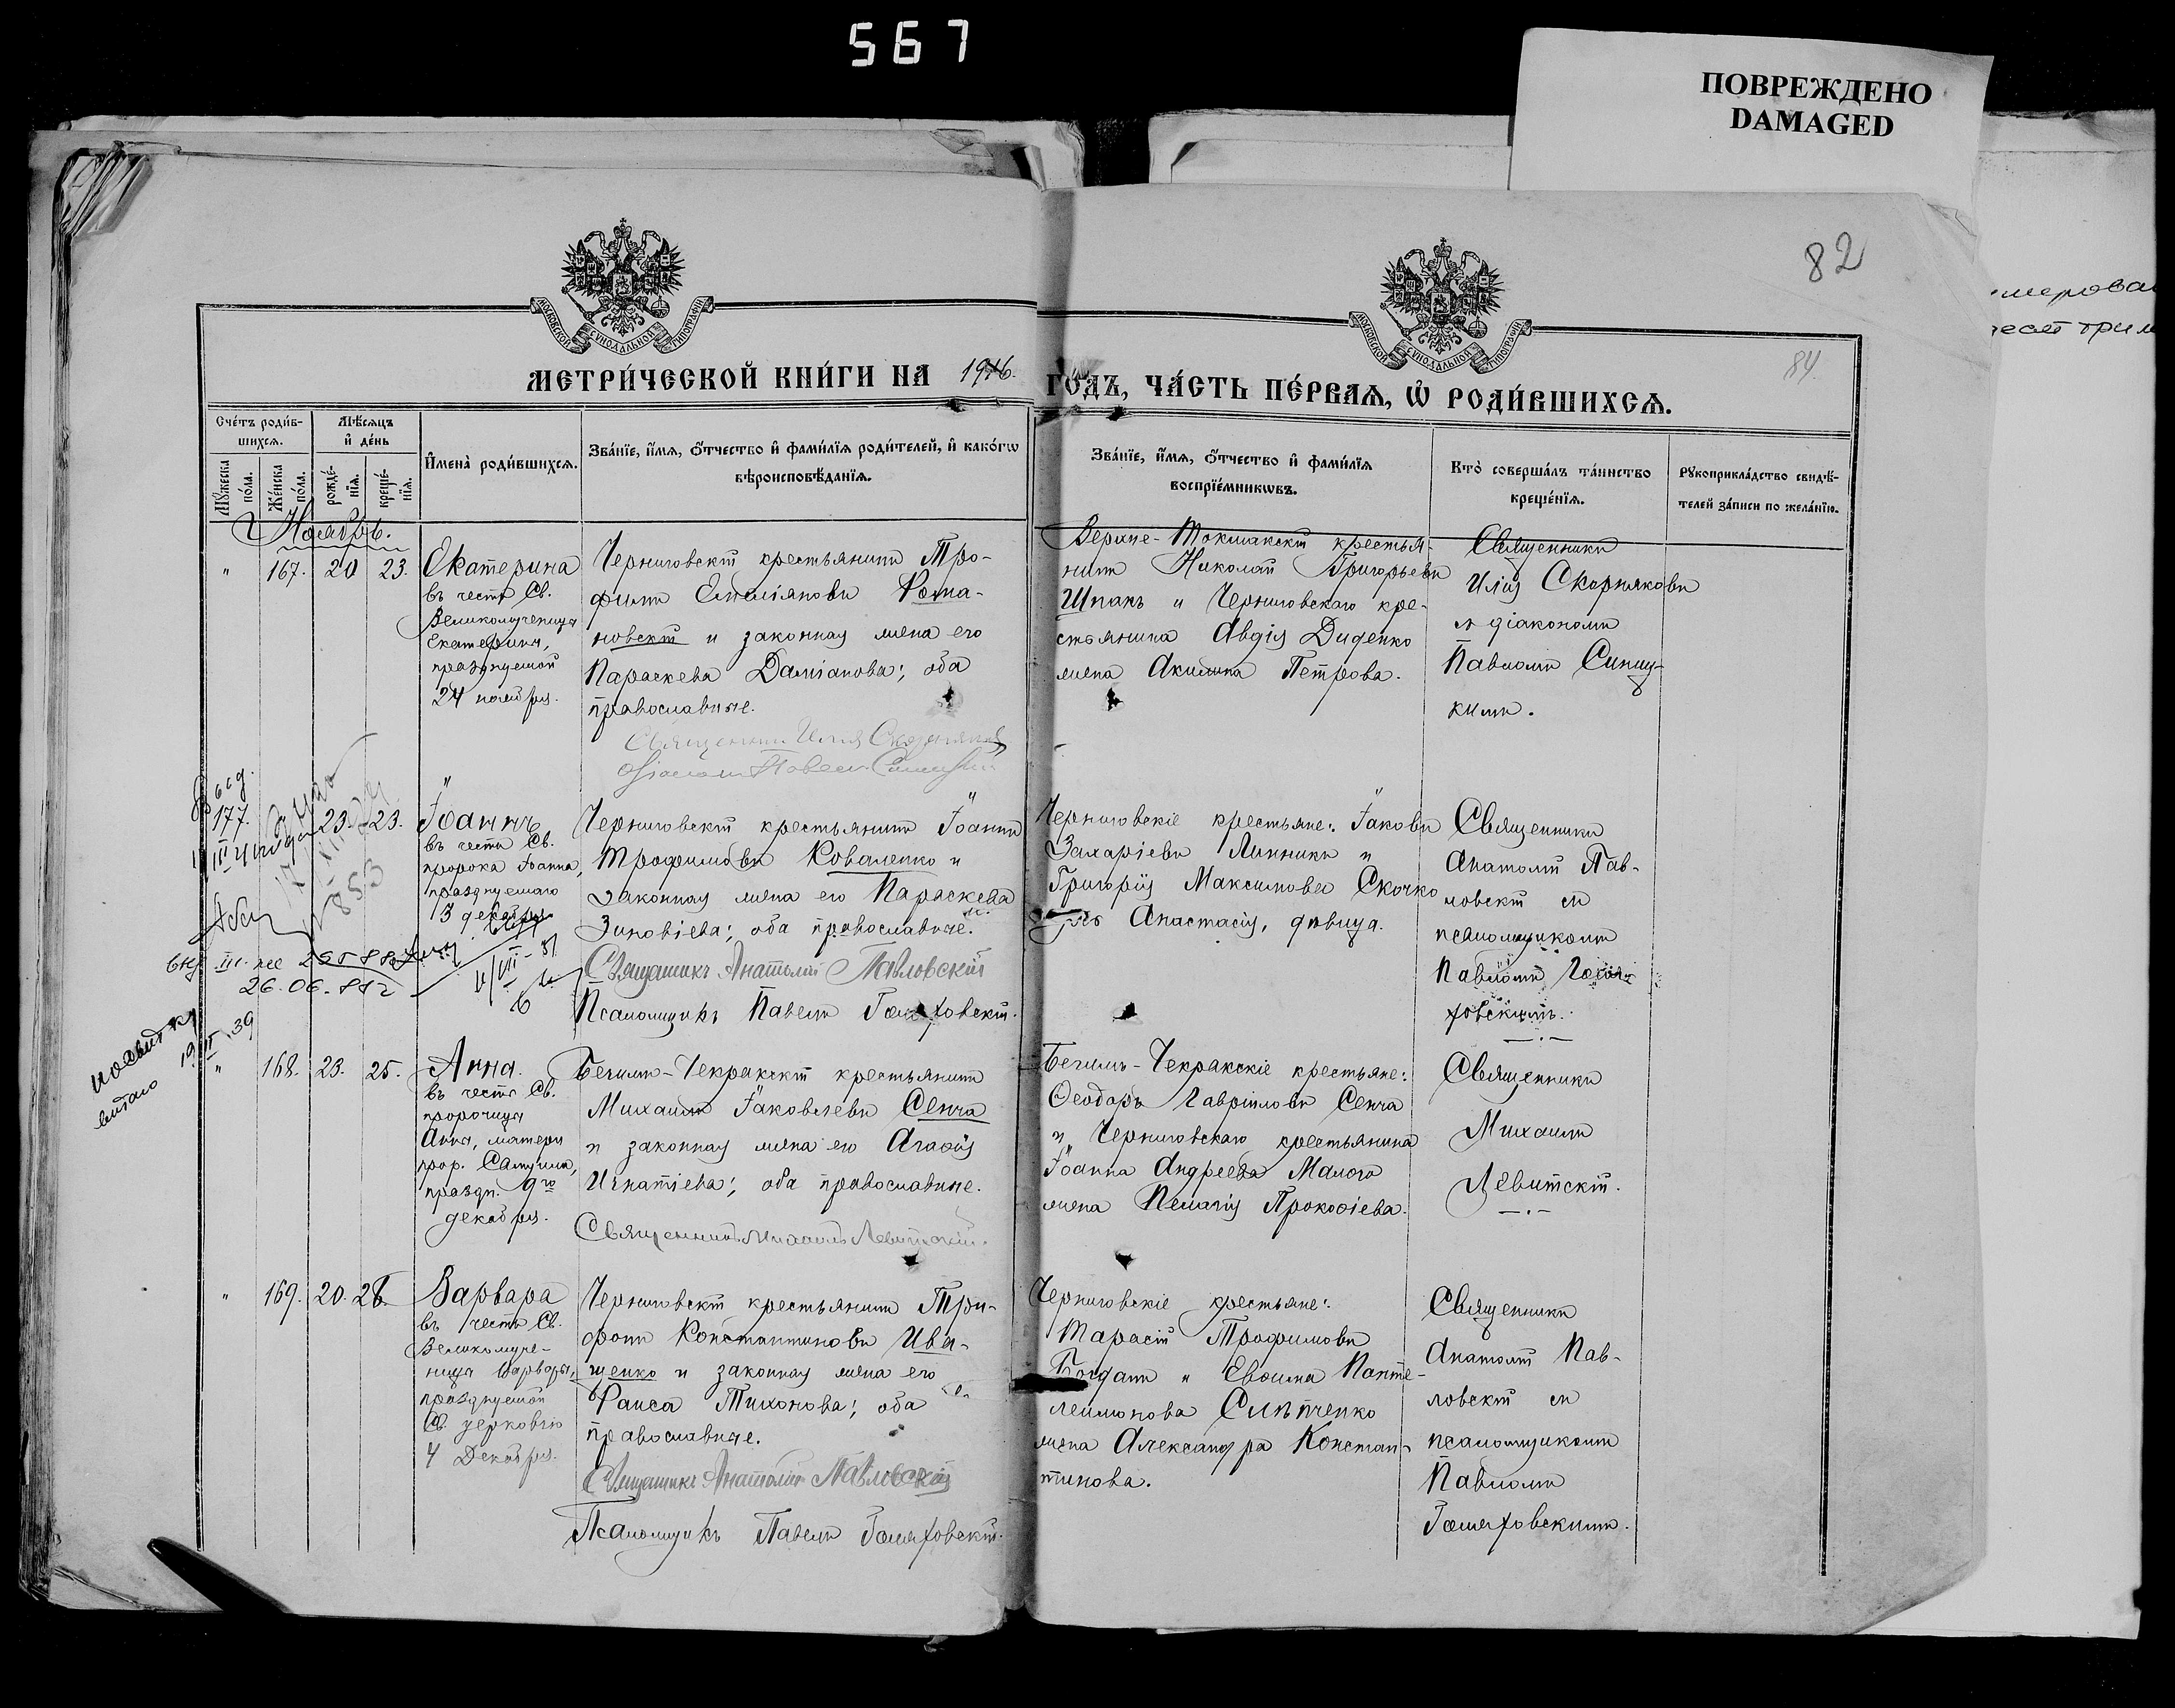 567
ПОВРЕЖДЕНО
DAMAGED
82
84
МОСКОВСКОЙ СѴНОДАЛЬНОЙ ТИПОГРАФІИ
МОСКОВСКОЙ СѴНОДАЛЬНОЙ ТИПОГРАФІИ
МЕТРИ́ЧЕСКОЙ КНИ́ГИ НА 1916. ГО́ДЪ, ЧА́СТЬ ПЕ́РВАѦ, Ѡ҆ РОДИ́ВШИХСѦ.
Сче́тъ роди́в-
шихсѧ.
Мꙋ́жеска по́ла.
Же́нска по́ла.
Мѣ́сѧцъ
и҆ де́нь
рожде́-
нїѧ.
креще́-
нїѧ.
И҆мена̀ роди́вшихсѧ.
Зва́нїе, и҆́мѧ, ѻ҆́тчество и҆ фами́лїѧ роди́телей, и҆ како́гѡ
вѣроисповѣ́данїѧ.
Зва́нїе, и҆́мѧ, ѻ҆́тчество и҆ фами́лїѧ
воспрїе́мникѡвъ.
Кто̀ соверша́лъ та́инство
креще́нїѧ.
Рꙋкоприкла́дство свидѣ́-
телей за́писи по жела́нїю.
Ноябрь.
" 167. 20 23.
Екатерина
въ честь Св.
Великомученицы
Екатерины,
празднуемой
24 ноября.
Черниговскій крестьянинъ Тро-
фимъ Емеліяновъ Рома-
новскій и законная жена его
Параскева Даміанова; оба
православные.
Священникъ Илія Скорняковъ
Діаконъ Павелъ
Верхне-Токмакскій крестья-
нинъ Николай Григорьевъ
Шпакъ и Черниговскаго кре-
стьянина Авдія Диденко
жена Акилина Петрова.
Священникъ
Илія Скорняковъ
съ діакономъ
Павломъ Синиц-
кимъ.
177. 23. 23.
Іоаннъ
въ честь Св.
пророка Іоанна,
празднуемаго
3 декабря
Черниговскій крестьянинъ Іоаннъ
Трофимовъ Коваленко и
законная жена его Параскева
Зиновіева; оба православные.
Священникъ Анатолій Павловскій
Псаломщикъ Павелъ Голяховскій.
Черниговскіе крестьяне: Іаковъ
Захаріевъ Линникъ и
Григорія Максимова Скочко
Анастасія, дѣвица.
Священникъ
Анатолій Пав-
ловскій съ
псаломщикомъ
Павломъ Голя-
ховскимъ.
853
26.06.
19
39
" 168. 23. 25.
Анна.
въ честь Св.
пророчицы
Анны, матери
прор. Самуила,
праздн. 9го
декабря.
Бегимъ-Чекракскій крестьянинъ
Михаилъ Іаковлевъ Сенча
и законная жена его Агафія
Игнатіева; оба православные.
Священникъ Михаилъ Левитскій.
Бегимъ-Чекракскіе крестьяне:
Ѳеодоръ Гавріиловъ Сенча
и Черниговскаго крестьянина
Іоанна Андреева Малого
жена Пелагія Прокофіева.
Священникъ
Михаилъ
Левитскій.
" 169. 20. 26.
Варвара
въ честь Св.
Великомуче-
ницы Варвары,
празднуемой
Св. церковію
4 Декабря.
Черниговскій крестьянинъ Три-
фонъ Константиновъ Ива-
щенко и законная жена его
Раиса Тихонова; оба
православные.
Священникъ Анатолій Павловскій
Псаломщикъ Павелъ Голяховскій.
Черниговскіе крестьяне:
Тарасій Трофимовъ
Богданъ и Евфима Панте-
леимонова Слѣпченко
жена Александра Констан-
тинова.
Священникъ
Анатолій Пав-
ловскій съ
псаломщикомъ
Павломъ
Голяховскимъ.